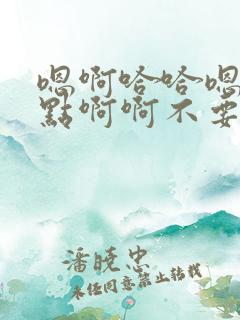 嗯啊哈哈嗯
點啊啊不要
潘曉忠
未经同意禁止转载